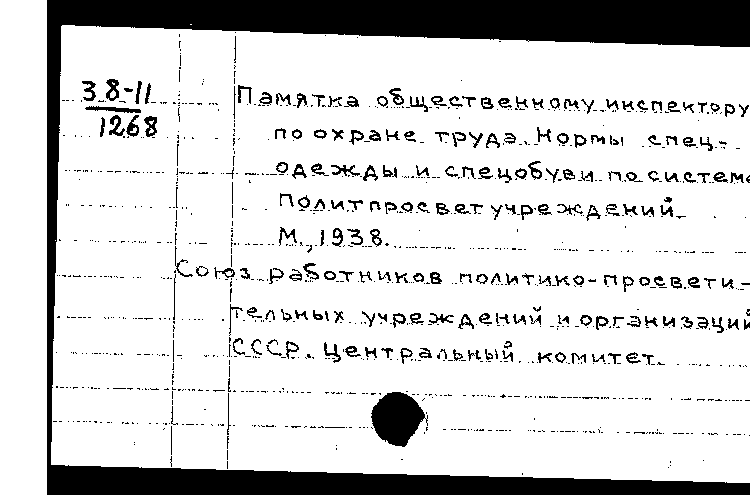 38-11
1268
Памятка общественному инспектору
по охране труда. Нормы спец-
одежды и спецобуви по системе
Политпросветучреждений.
М., 1938.
Союз работников политико-просвети-
тельных учреждений и организаций
СССР. Центральный комитет.